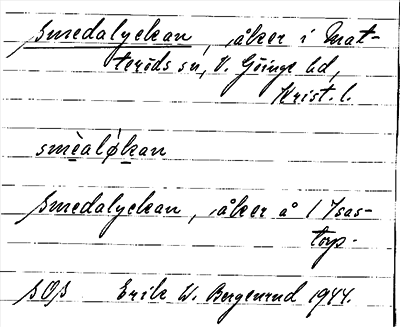 Smedalyckan, åker i Mat-
teröds sn, V. Göinge hd,
Krist. l.
smèalǿkan
Smedalyckan, åker å 17 Isas-
torp.
SOS Erik W. Bergenrud 1944.